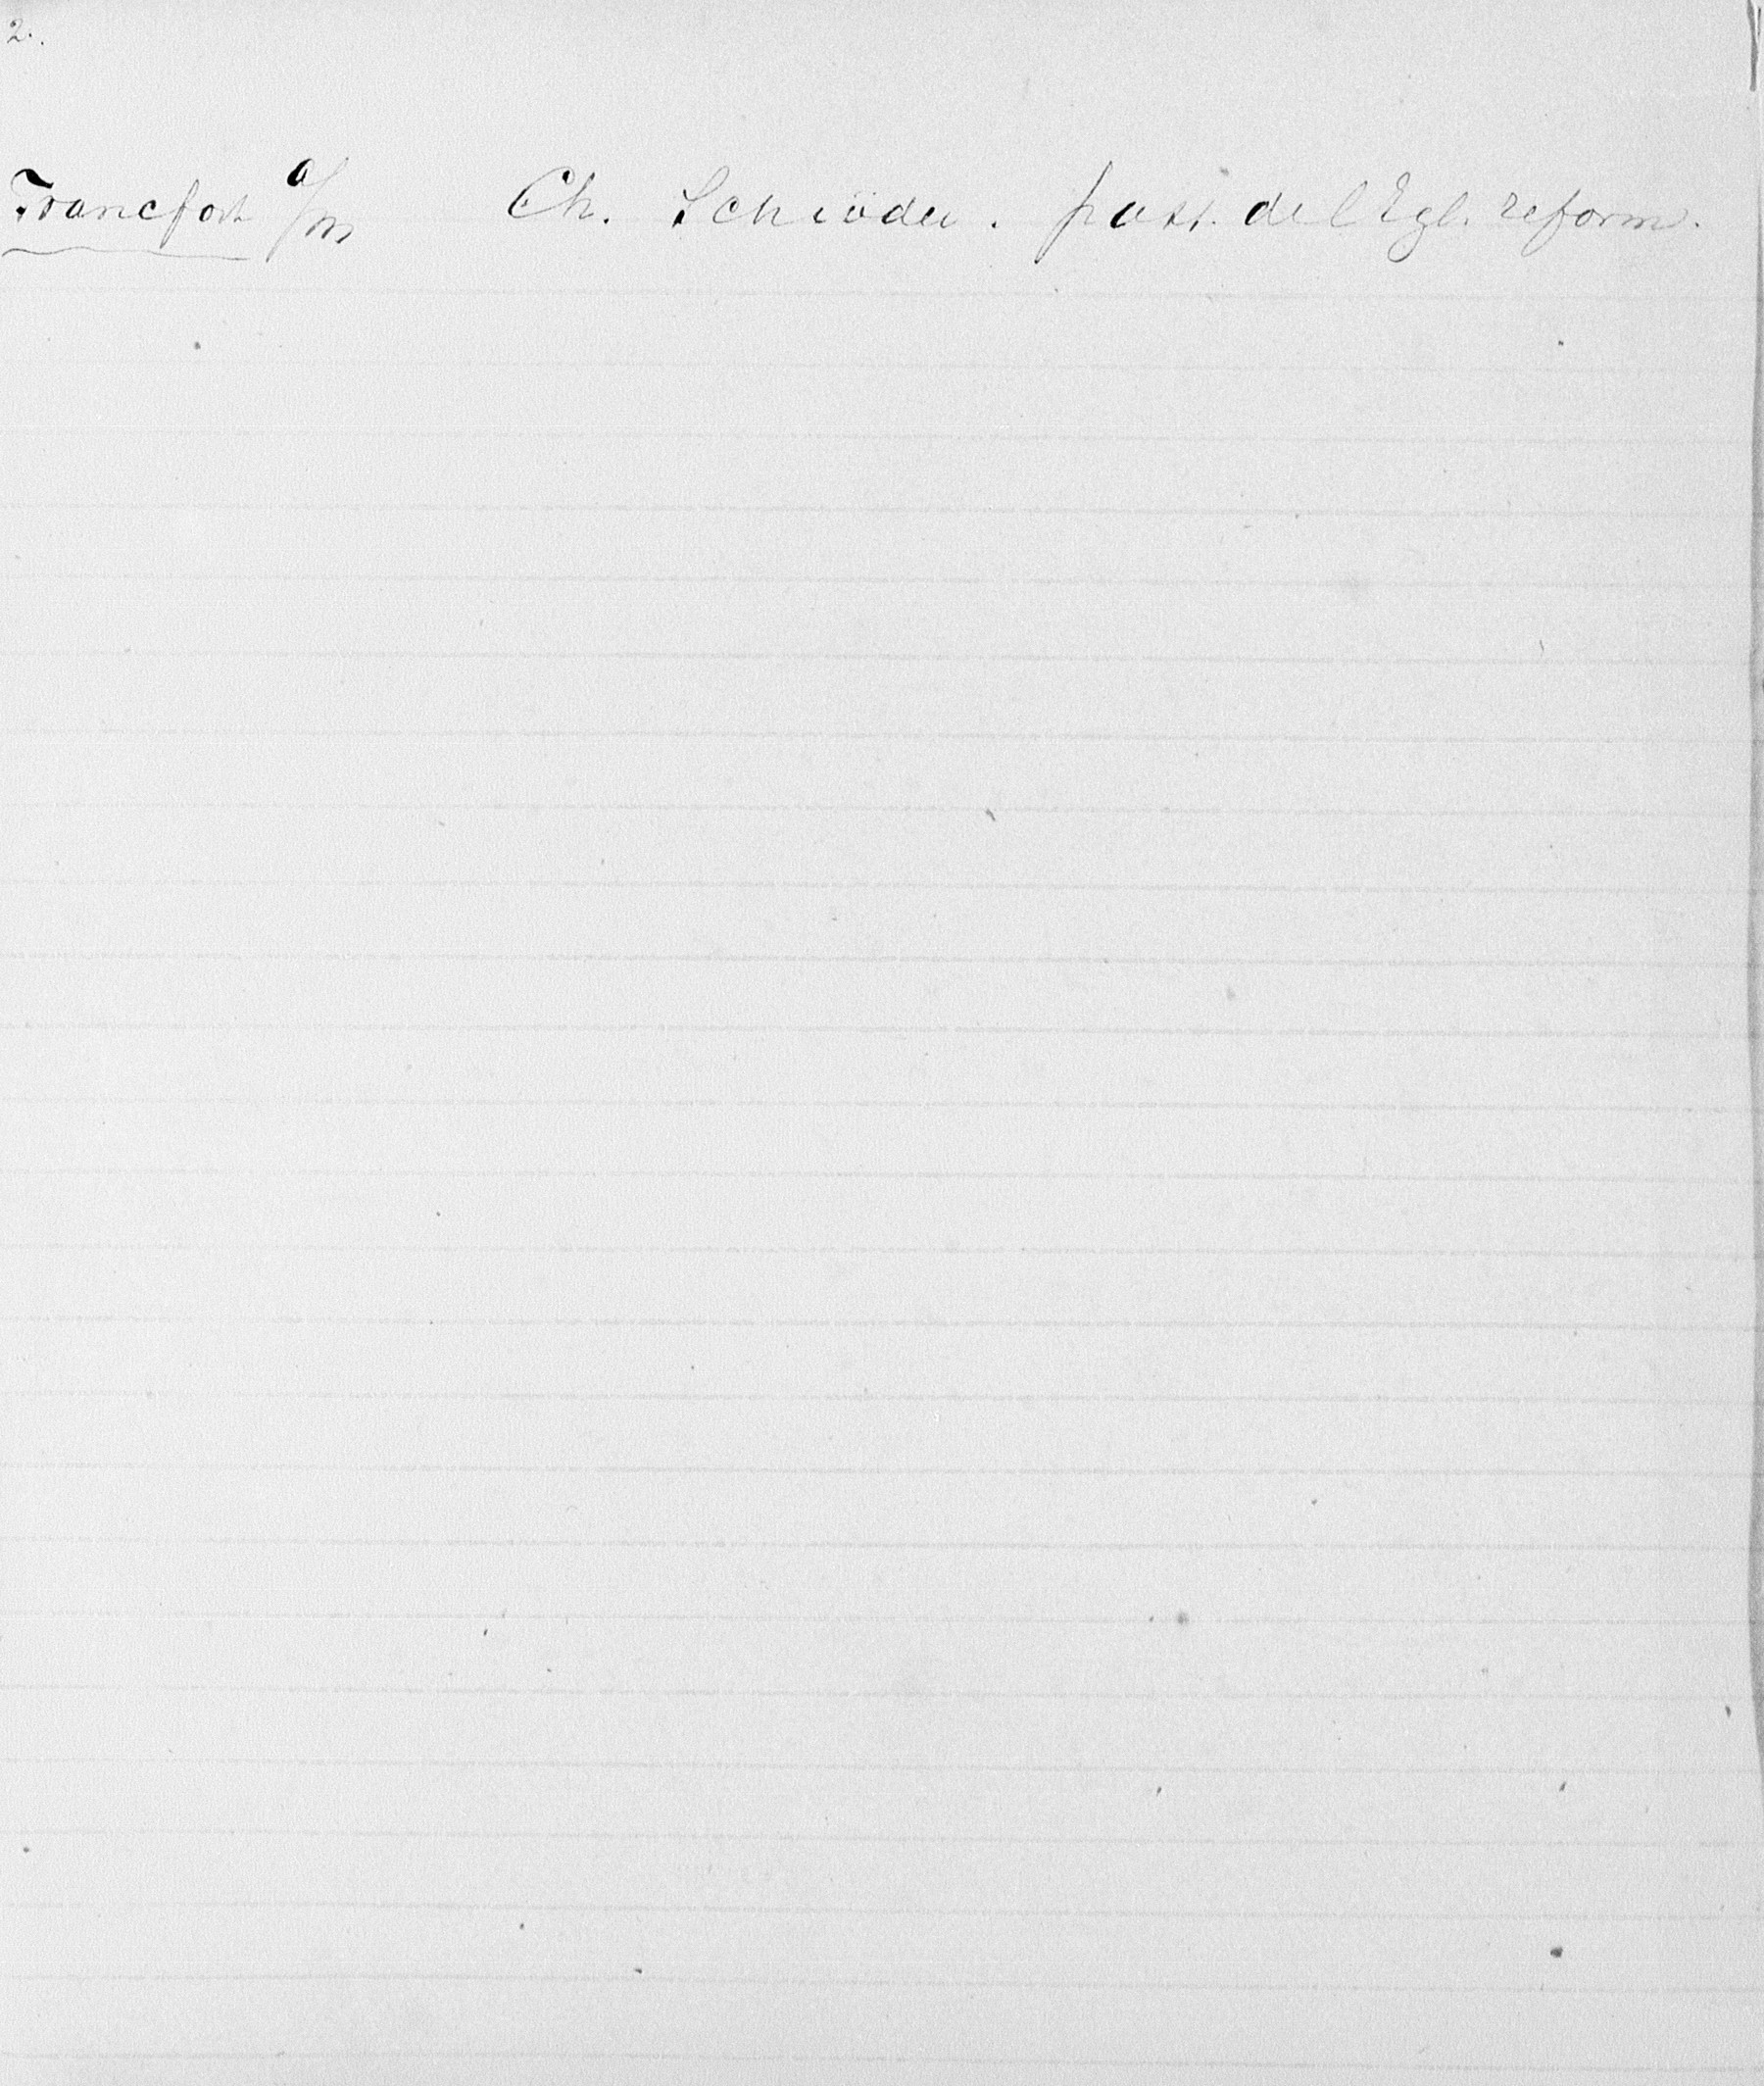 2.
Francfort a/m Ch. Schröder. past. de l Egl. reform.